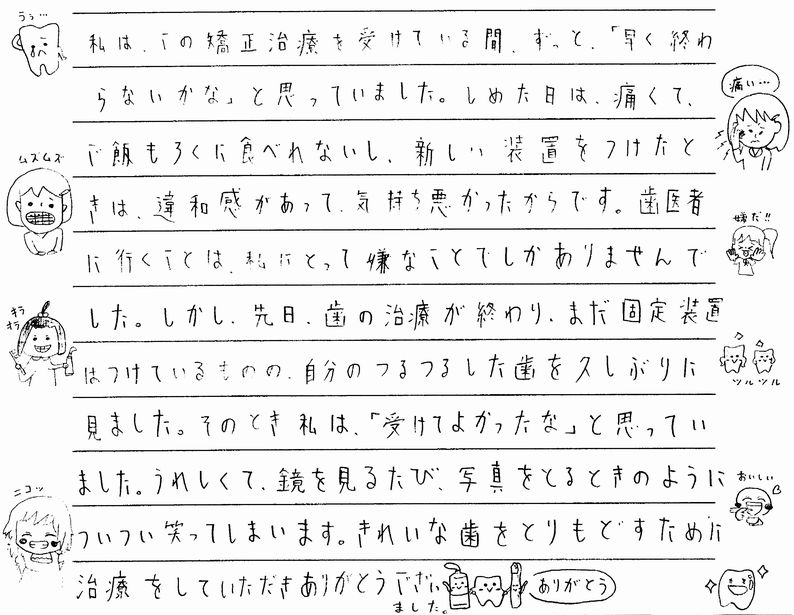 うぅ…
私は、この矯正治療を受けている間、ずっと、「早く終わ
らないかな」と思っていました。しめた日は、痛くて、
痛い…
ご飯もろくに食べれないし、新しい装置をつけたと
ムズムズ
きは、違和感があって、気持ち悪かったからです。歯医者
嫌だ!!
に行くことは、私にとって嫌なことでしかありませんで
した。しかし、先日、歯の治療が終わり、まだ固定装置
キラ
キラ
はつけているものの、自分のつるつるした歯を久しぶりに
ツルツル
見ました。そのとき私は、「受けてよかったな」と思ってい
ました。うれしくて、鏡を見るたび、写真をとるときのように
おいしい
ニコッ
ついつい笑ってしまいます。きれいな歯をとりもどすために
治療をしていただきありがとうござい
ました。
ありがとう